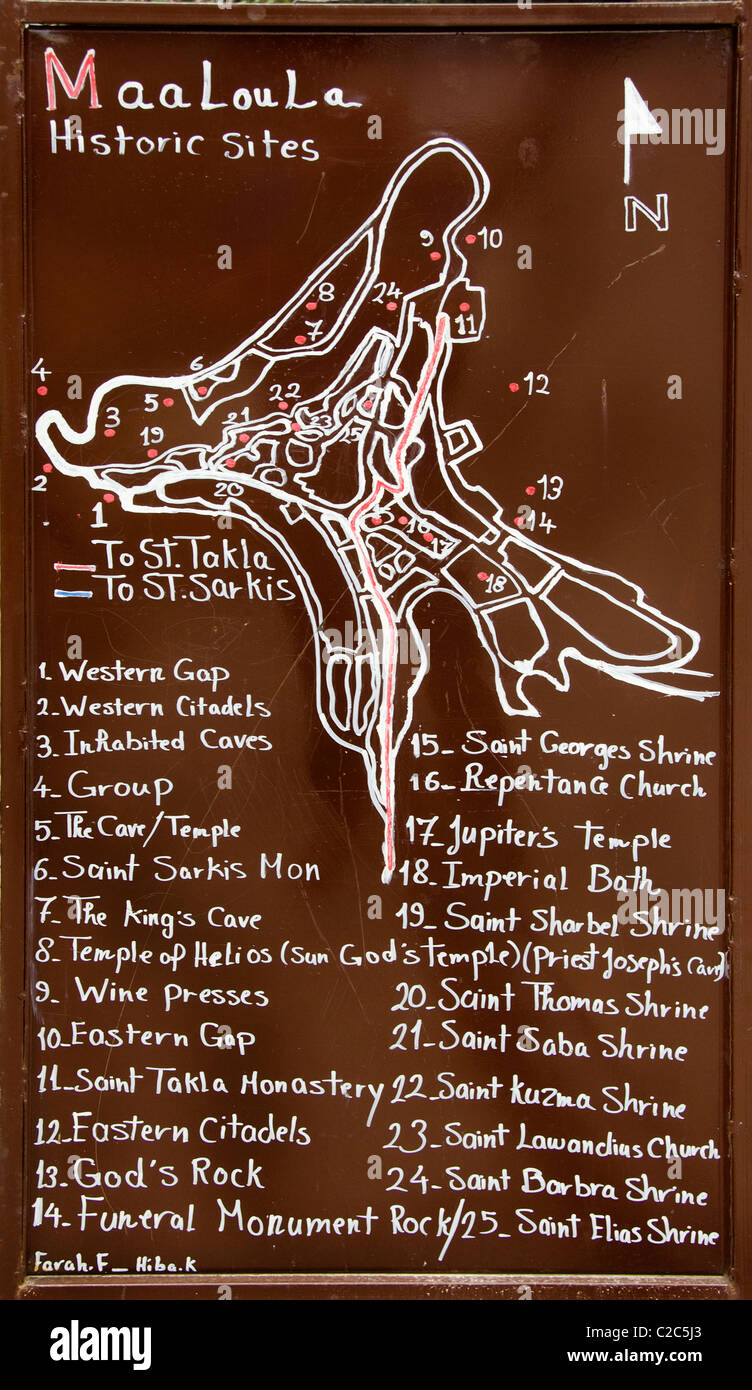 MaaLouLa
Historic Sites
N
9
10
8
24
11
7
4
6
12
5
22
3
21
23
25
19
2
13
20
1
16
14
17
18
To ST. Takla
To ST. Sarkis
1- Western Gap
2- Western Citadels
3- Inhabited Caves
4- Group
5- The Cave/Temple
6- Saint Sarkis Mon
7- The King's Cave
8- Temple of Helios (Sun God's Temple)(Priest Joseph's Cave)
9- Wine Presses
10- Eastern Gap
11- Saint Takla Monastery/
12- Eastern Citadels
13- God's Rock
14- Funeral Monument Rock/
15- Saint Georges Shrine
16- Repentance Church
17- Jupiter's Temple
18- Imperial Bath
19- Saint Sharbel Shrine
20- Saint Thomas Shrine
21- Saint Saba Shrine
22- Saint Kuzma Shrine
23- Saint Lawandius Church
24- Saint Barbra Shrine
25- Saint Elias Shrine
Farah.F - Hiba.K
alamy
Image ID: C2C5J3
www.alamy.com